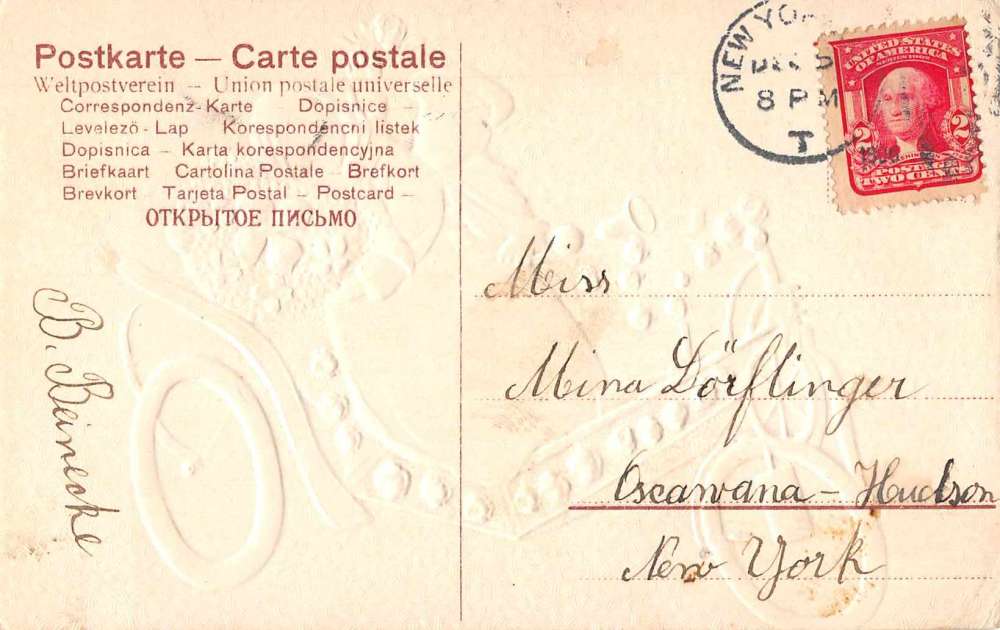 Postkarte — Carte postale
Weltpostverein — Union postale universelle
Correspondenz-Karte Dopisnice —
Levelező - Lap Korespondéncni listek
Dopisnica — Karta korespondencyjna
Briefkaart Cartolina Postale — Brefkort
Brevkort — Tarjeta Postal — Postcard —
ОТКРЫТОЕ ПИСЬМО
B. Beinecke
NEW YORK
DEC
8 PM
T
UNITED STATES
OF AMERICA
SERIES 1902
2 2
POSTAGE
TWO CENTS
Miss
Mina Dörflinger
Oscawana — Hudson
New York